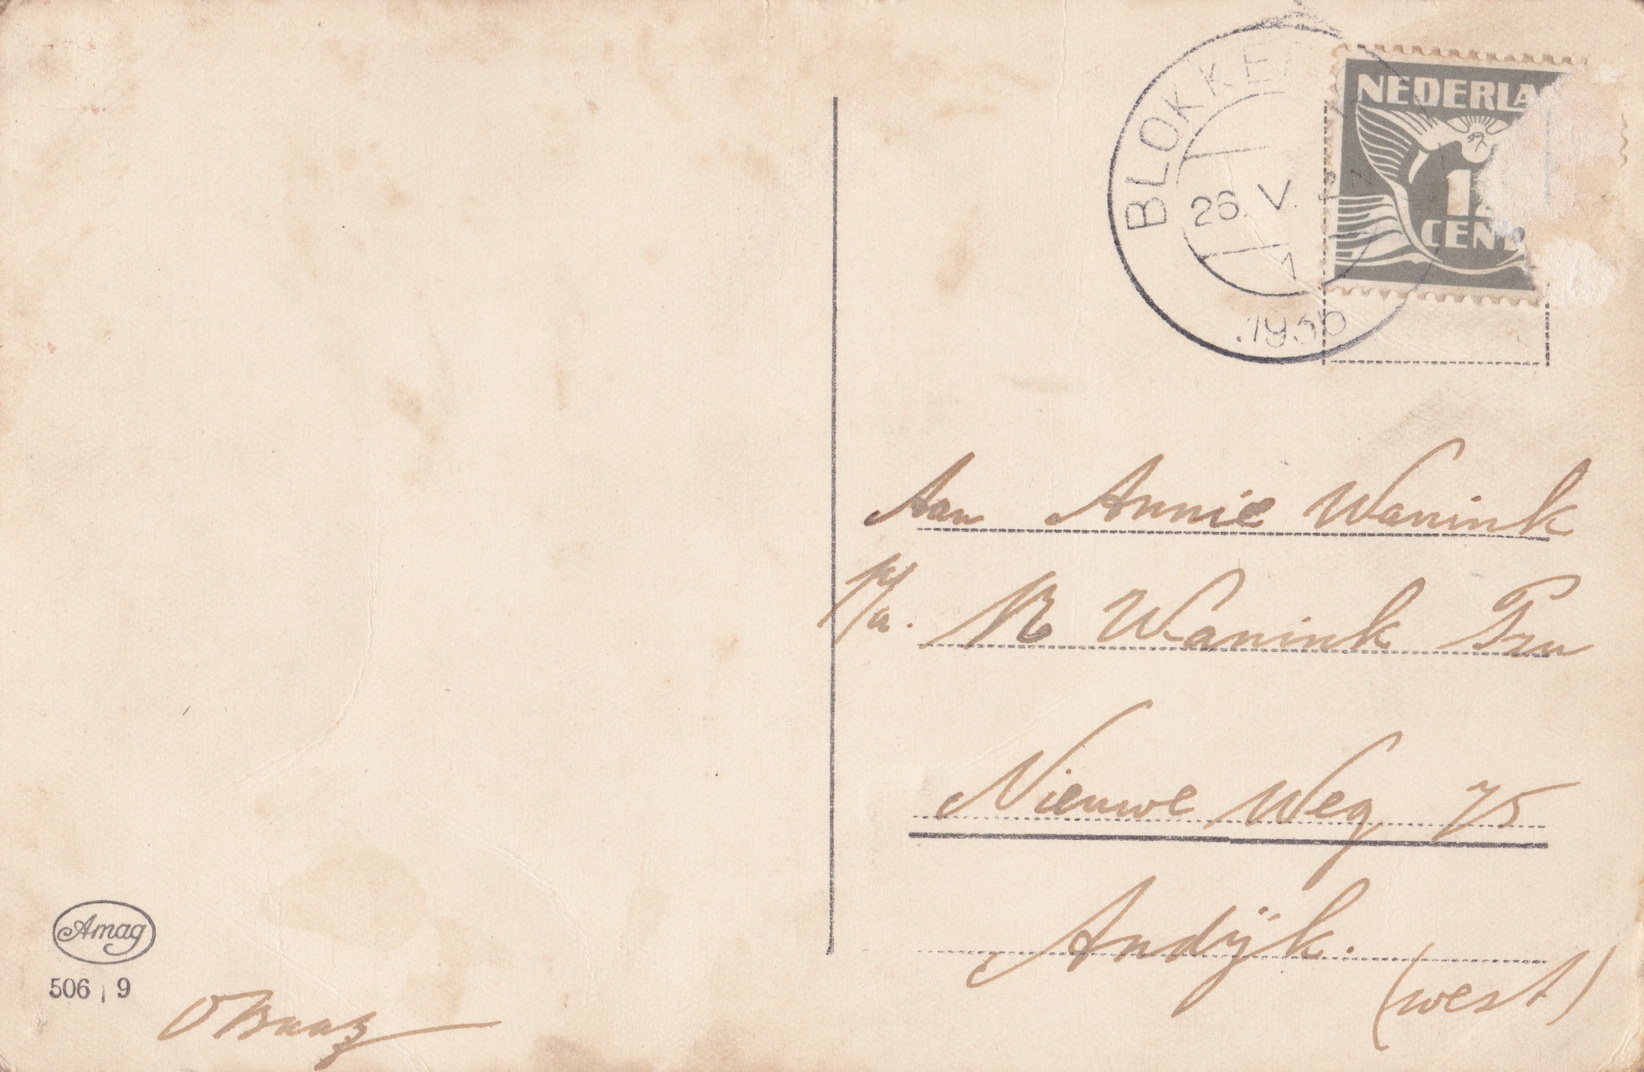 BLOKKE
26. V.
1
.1936
NEDERLA
1
CENT
Aan Annie Wanink
p/a. N Wanink Pzn
Nieuwe Weg 75
Andijk.
(west)
Amag
506 9